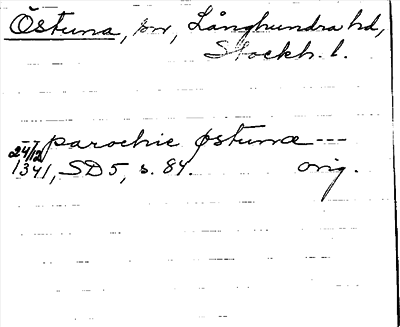 Östuna, sn, Långhundra hd,
Stockh. l.
-- parochie østunæ ---
24/12
1341, SD 5, s. 84. orig.